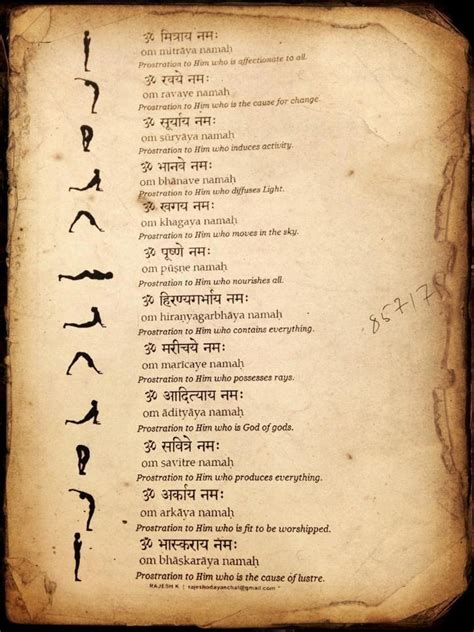 ॐ मित्राय नमः
om mitrāya namaḥ
Prostration to Him who is affectionate to all.
ॐ रवये नमः
om ravaye namaḥ
Prostration to Him who is the cause for change.
ॐ सूर्याय नमः
om sūryāya namaḥ
Prostration to Him who induces activity.
ॐ भानवे नमः
om bhānave namaḥ
Prostration to Him who diffuses Light.
ॐ खगय नमः
om khagaya namaḥ
Prostration to Him who moves in the sky.
ॐ पूष्णे नमः
om pūṣne namaḥ
Prostration to Him who nourishes all.
ॐ हिरण्यगर्भाय नमः
om hiraṇyagarbhāya namaḥ
Prostration to Him who contains everything.
ॐ मरीचये नमः
om marīcaye namaḥ
Prostration to Him who possesses rays.
ॐ आदित्याय नमः
om ādityāya namaḥ
Prostration to Him who is God of gods.
ॐ सवित्रे नमः
om savitre namaḥ
Prostration to Him who produces everything.
ॐ अर्काय नमः
om arkāya namaḥ
Prostration to Him who is fit to be worshipped.
ॐ भास्कराय नमः
om bhāskarāya namaḥ
Prostration to Him who is the cause of lustre.
RAJESH K | rajeshodayanchal@gmail.com